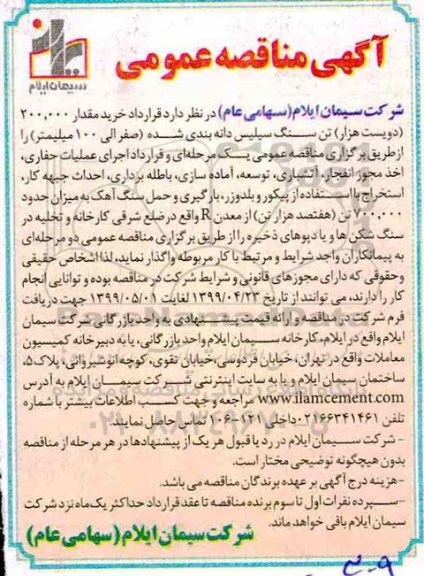 آگهی مناقصه عمومی
سیمان ایلام
شرکت سیمان ایلام (سهامی عام) در نظر دارد قرارداد خرید مقدار ۲۰۰,۰۰۰
(دویست هزار) تن سنگ سیلیس دانه بندی شده (صفر الی ۱۰۰ میلیمتر) را
از طریق برگزاری مناقصه عمومی یک مرحله‌ای و قرارداد اجرای عملیات حفاری،
اخذ مجوز انفجار، آتشباری، توسعه، آماده سازی، باطله برداری، احداث جبهه کار،
استخراج با استفاده از پیکور و بلدوزر، بارگیری و حمل سنگ آهک به میزان حدود
۷۰۰,۰۰۰ تن (هفتصد هزار تن) از معدن R واقع در ضلع شرقی کارخانه و تخلیه در
سنگ شکن ها و یا دپوهای ذخیره را از طریق برگزاری مناقصه عمومی دو مرحله‌ای
به پیمانکاران واجد شرایط و مرتبط با کار مربوطه واگذار نماید، لذا اشخاص حقیقی
و حقوقی که دارای مجوزهای قانونی و شرایط شرکت در مناقصه بوده و توانایی انجام
کار را دارند، می توانند از تاریخ ۱۳۹۹/۰۴/۲۳ لغایت ۱۳۹۹/۰۵/۰۱ جهت دریافت
فرم شرکت در مناقصه و ارائه قیمت پیشنهادی به واحد بازرگانی شرکت سیمان
ایلام واقع در ایلام، کارخانه سیمان ایلام واحد بازرگانی، یا به دبیرخانه کمیسیون
معاملات واقع در تهران، خیابان فردوسی، خیابان تقوی، کوچه انوشیروانی، پلاک ۵،
ساختمان سیمان ایلام و یا به سایت اینترنتی شرکت سیمان ایلام به آدرس
www.ilamcement.com مراجعه و جهت کسب اطلاعات بیشتر با شماره
تلفن ۰۲۱۶۶۳۴۱۴۶۱ داخلی ۱۰۶-۱۴۲۱ تماس حاصل نمایند.
- شرکت سیمان ایلام در رد یا قبول هر یک از پیشنهادها در هر مرحله از مناقصه
بدون هیچگونه توضیحی مختار است.
- هزینه درج آگهی بر عهده برندگان مناقصه می باشد.
- سپرده نفرات اول تا سوم برنده مناقصه تا عقد قرارداد حداکثر یک ماه نزد شرکت
سیمان ایلام باقی خواهد ماند.
شرکت سیمان ایلام (سهامی عام)